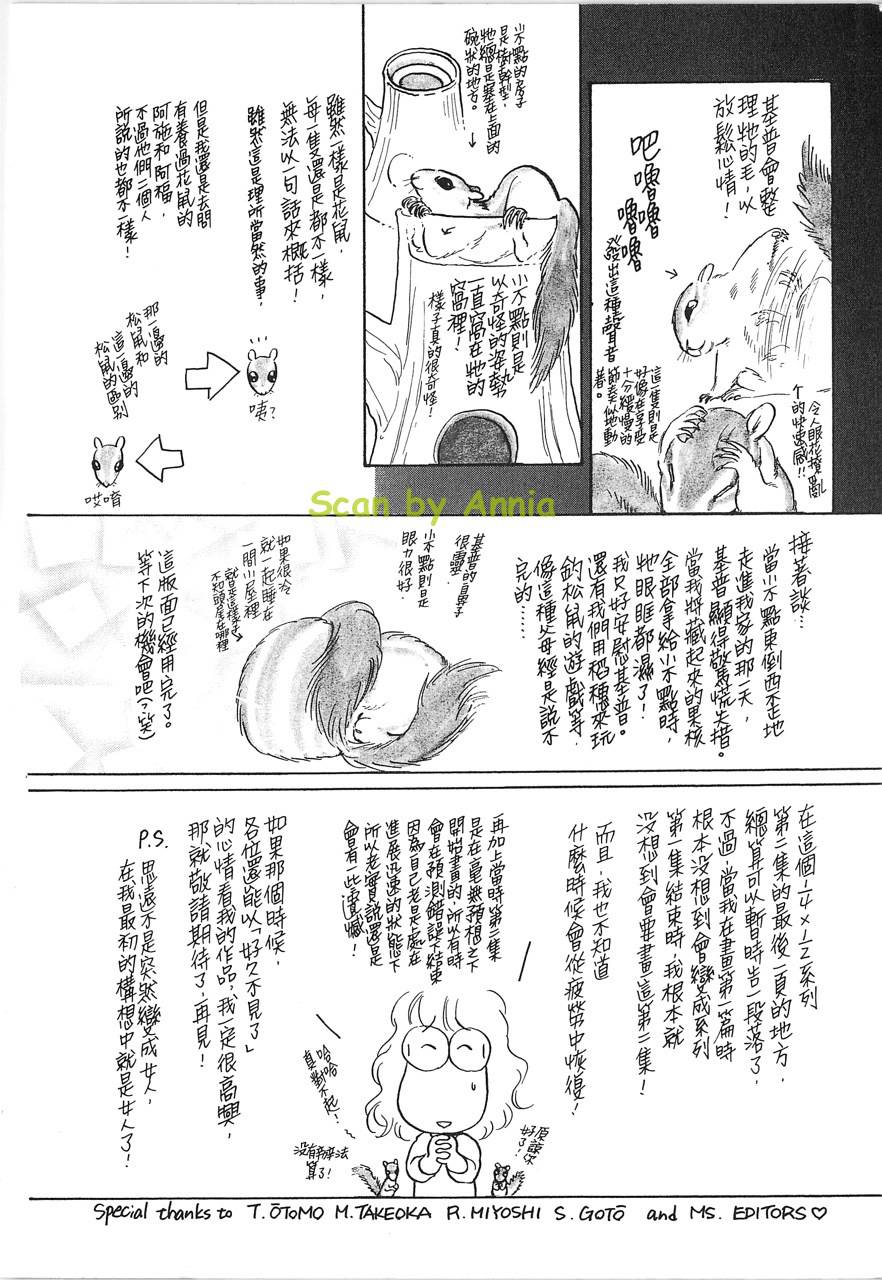 基普會整
理牠的毛，以
放鬆心情！
吧嚕嚕
嚕嚕
發出這種聲音
令人眼花撩亂
的快速感！！
這一隻則是
好像在享受
十分緩慢的
節奏似地動
著。
小不點的房子
是樹幹型，
牠總是塞在上面的
碗狀的地方。
小不點則是
以奇怪的姿勢
一直窩在牠的
窩裡！
樣子真的很奇怪！
雖然一樣是花鼠，
每一隻還是都不一樣，
無法以一句話來概括！
雖然這是理所當然的事，
但是我還是去問
有養過花鼠的
阿施和阿福，
不過他們二個人
所說的也都不一樣！
咦？
那一邊的
松鼠和
這一邊的
松鼠的區別
哎唷
Scan by Annia
接著談…
當小不點東倒西歪地
走進我家的那一天，
基普顯得驚慌失措。
當我將藏起來的果核
全部拿給小不點時，
牠眼眶都濕了！
我又好安慰基普。
還有我們用稻穗來玩
釣松鼠的遊戲等，
像這種父母經是說不
完的……
基普的鼻子
很靈…
小不點則是
眼力很好
如果很冷
就一起睡在
一間小屋裡
就是這樣子
不知頭尾在哪裡
這版面已經用完了。
等下次的機會吧（？笑）
在這個1/4×1/2系列
第二集的最後一頁的地方，
總算可以暫時告一段落了，
不過，當我在畫第一篇時
根本沒想到會變成系列
第一集結束時，我根本就
沒想到會要畫這第二集！
而且，我也不知道
什麼時候會從疲勞中恢復！
再加上當時第二集
是在一毫無預想之下
開始畫的，所以有時
會在預測錯誤下結束
因為自己老是處在
進展迅速的狀態下
所以老實說還是
會有一些遺憾！
如果那個時候，
各位還能以「好久不見了」
的心情看我的作品，我一定很高興，
那就敬請期待了，再見！
P.S.
思遠不是突然變成女人，
在我最初的構想中就是女人了！
哈哈
真對不起！
原諒家
好了！
沒有辦法
算了！
Special thanks to T. ŌTOMO M. TAKEOKA R. MIYOSHI S. GOTŌ and MS. EDITORS♡